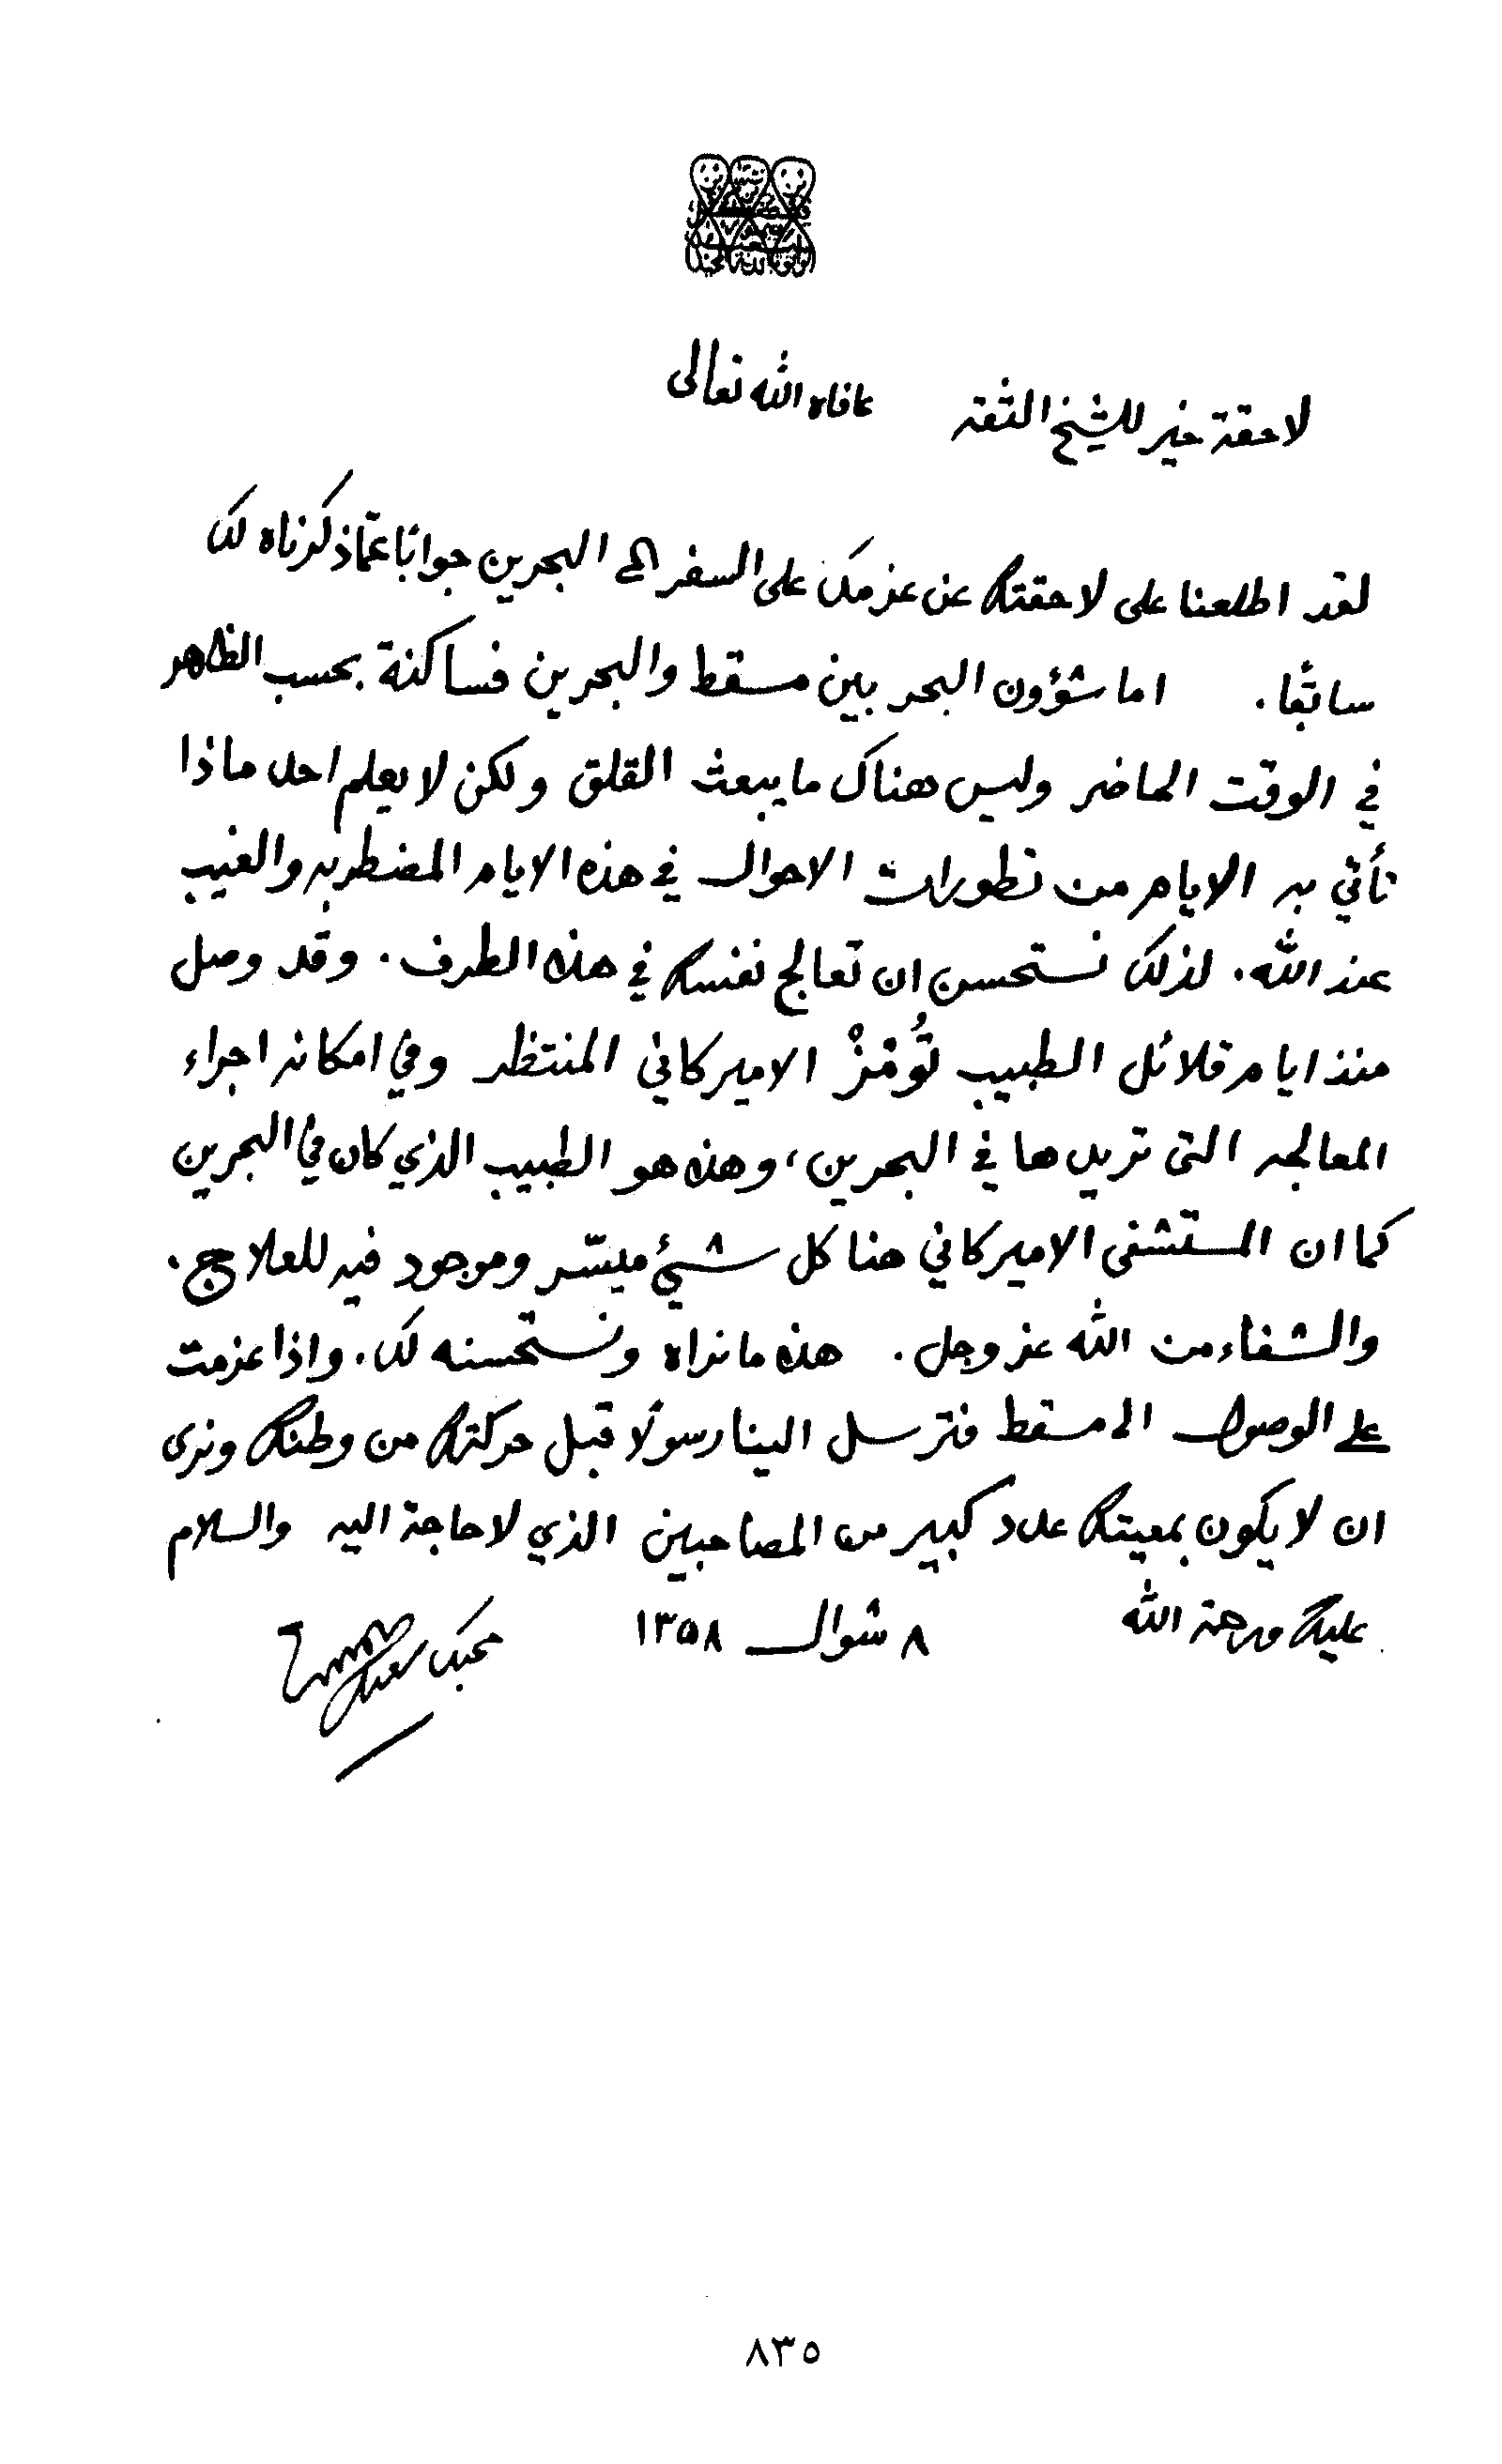 لاحقة خير للشيخ الثقه عافاه الله تعالى
لقد اطلعنا على لاحقتك عن عزمك على السفر الى البحرين جوابًا عمّا ذكرناه لك
سابقًا. اما شؤون البحر بين مسقط والبحرين فساكنة بحسب الظاهر
في الوقت الحاضر وليس هناك ما يبعث القلق ولكن لا يعلم احد ماذا
تأتي به الايام من تطورات الاحوال في هذه الايام المضطربه والغيب
عند الله. لذلك نستحسن ان تعالج نفسك في هذه الطرف. وقد وصل
منذ ايام قلائل الطبيب تُومْزْ الاميركاني المنتظر وفي امكانه اجراء
المعالجه التى تريدها في البحرين، وهذه هو الطبيب الذي كان في البحرين
كما ان المستشفى الاميركاني هنا كل شيئ ميسّر وموجود فيه للعلاج.
والشفاء من الله عز وجل. هذه ما نراه ونستحسنه لك. واذا عزمت
على الوصول الى مسقط فترسل الينا رسولًا قبل حركتك من وطنك ونرى
ان لا يكون بمعيتك عدد كبير من المصاحبين الذي لا حاجة اليه والسلام
عليك ورحمة الله ٨ شوال ١٣٥٨ محبك سعيد
٨٣٥